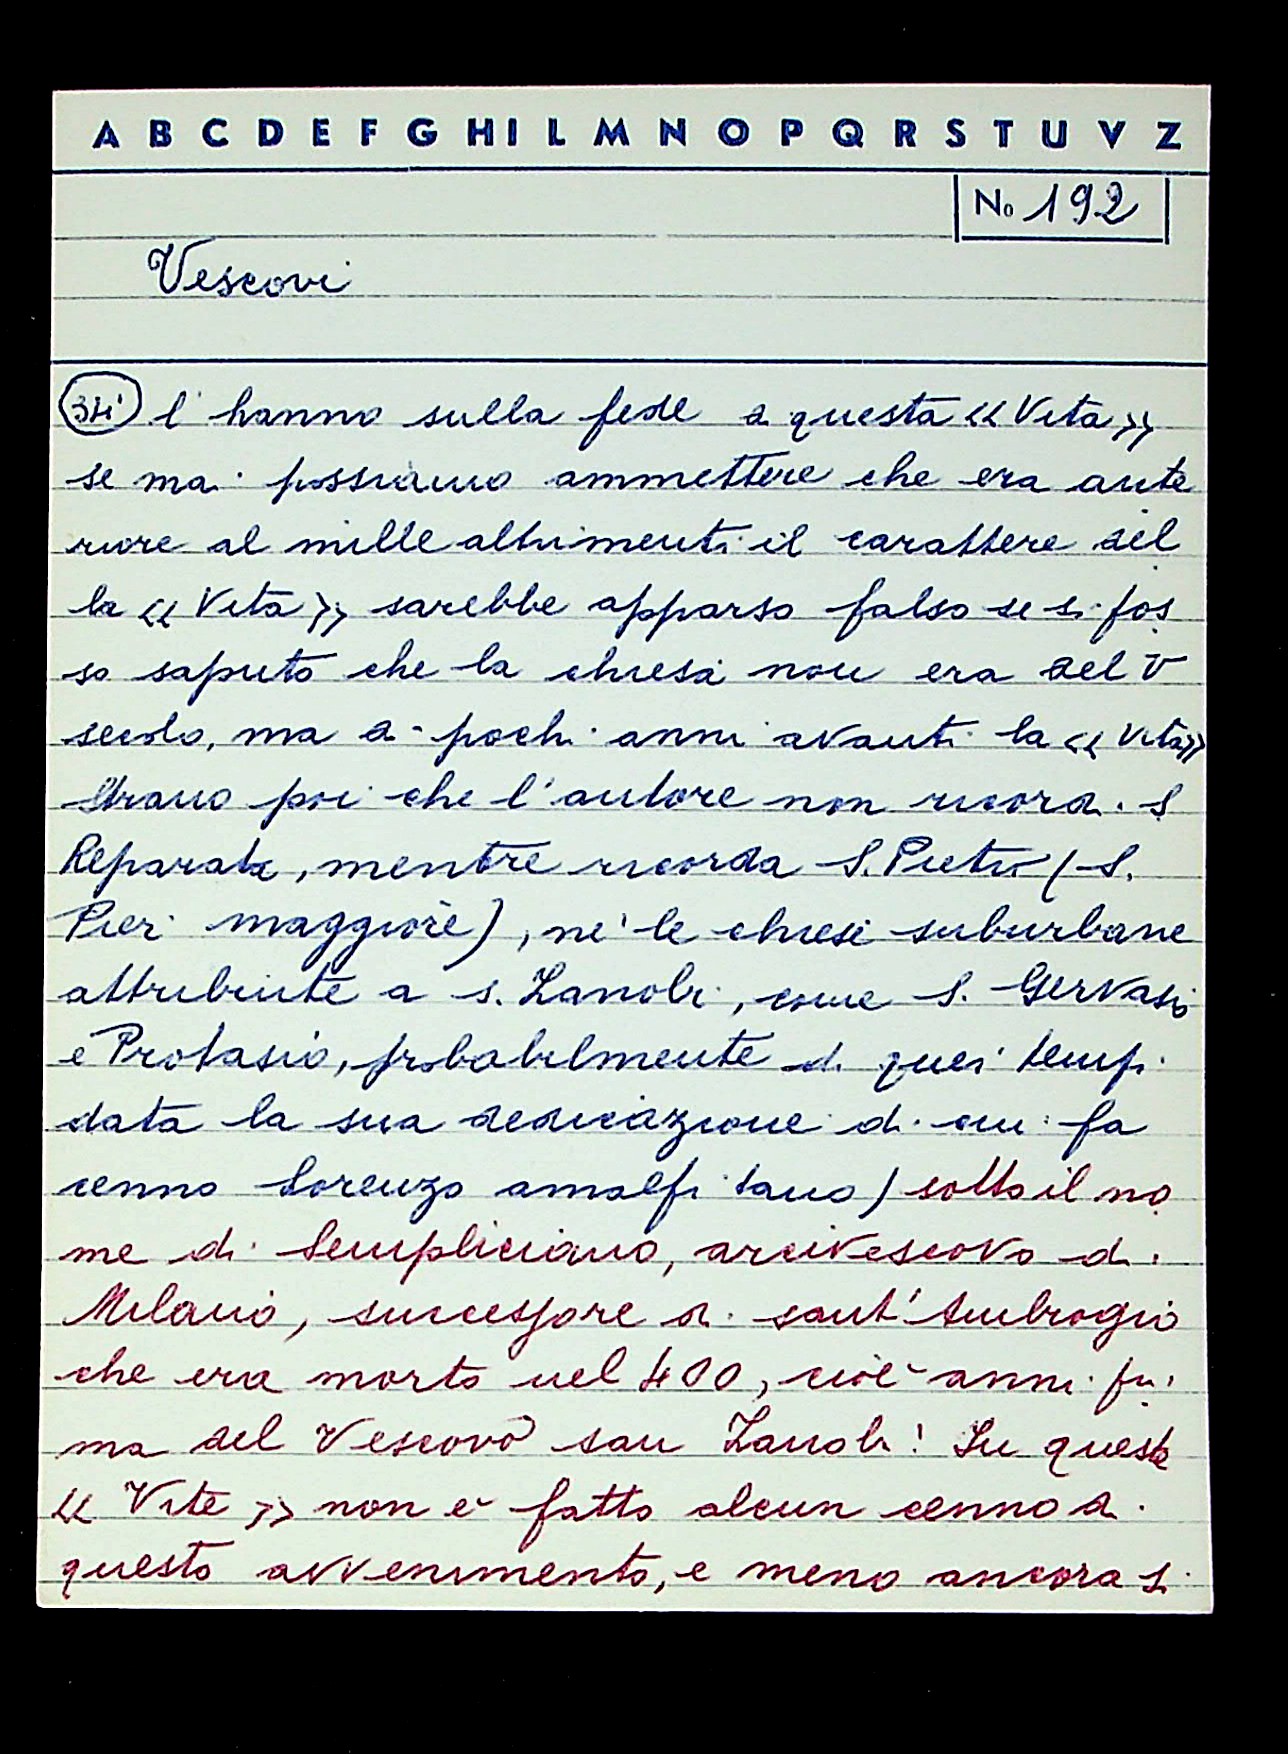 A B C D E F G H I L M N O P Q R S T U V Z
No 192
Vescovi
l'hanno sulla fede di questa « Vita »
se mai possiamo ammettere che era ante
riore al mille altrimenti il carattere del
la « Vita » sarebbe apparso falso se si fos
so saputo che la chiesa non era del V
secolo, ma di pochi anni avanti la « Vita »
Strano poi che l'autore non ricordi S
Reparata, mentre ricorda S. Pietro (S.
Pier maggiore), né le chiese suburbane
attribuite a s. Zanobi, come S. Gervasio
e Protasio, probabilmente di quei tempi
data la sua dedicazione di cui fa
cenno Lorenzo amalfitano) sotto il no
me di Sempliciano, arcivescovo di
Milano, successore di sant'Ambrogio
che era morto nel 400, cioè anni pri
ma del Vescovo san Zanobi! In queste
« Vite » non è fatto alcun cenno di
questo avvenimento, e meno ancora si